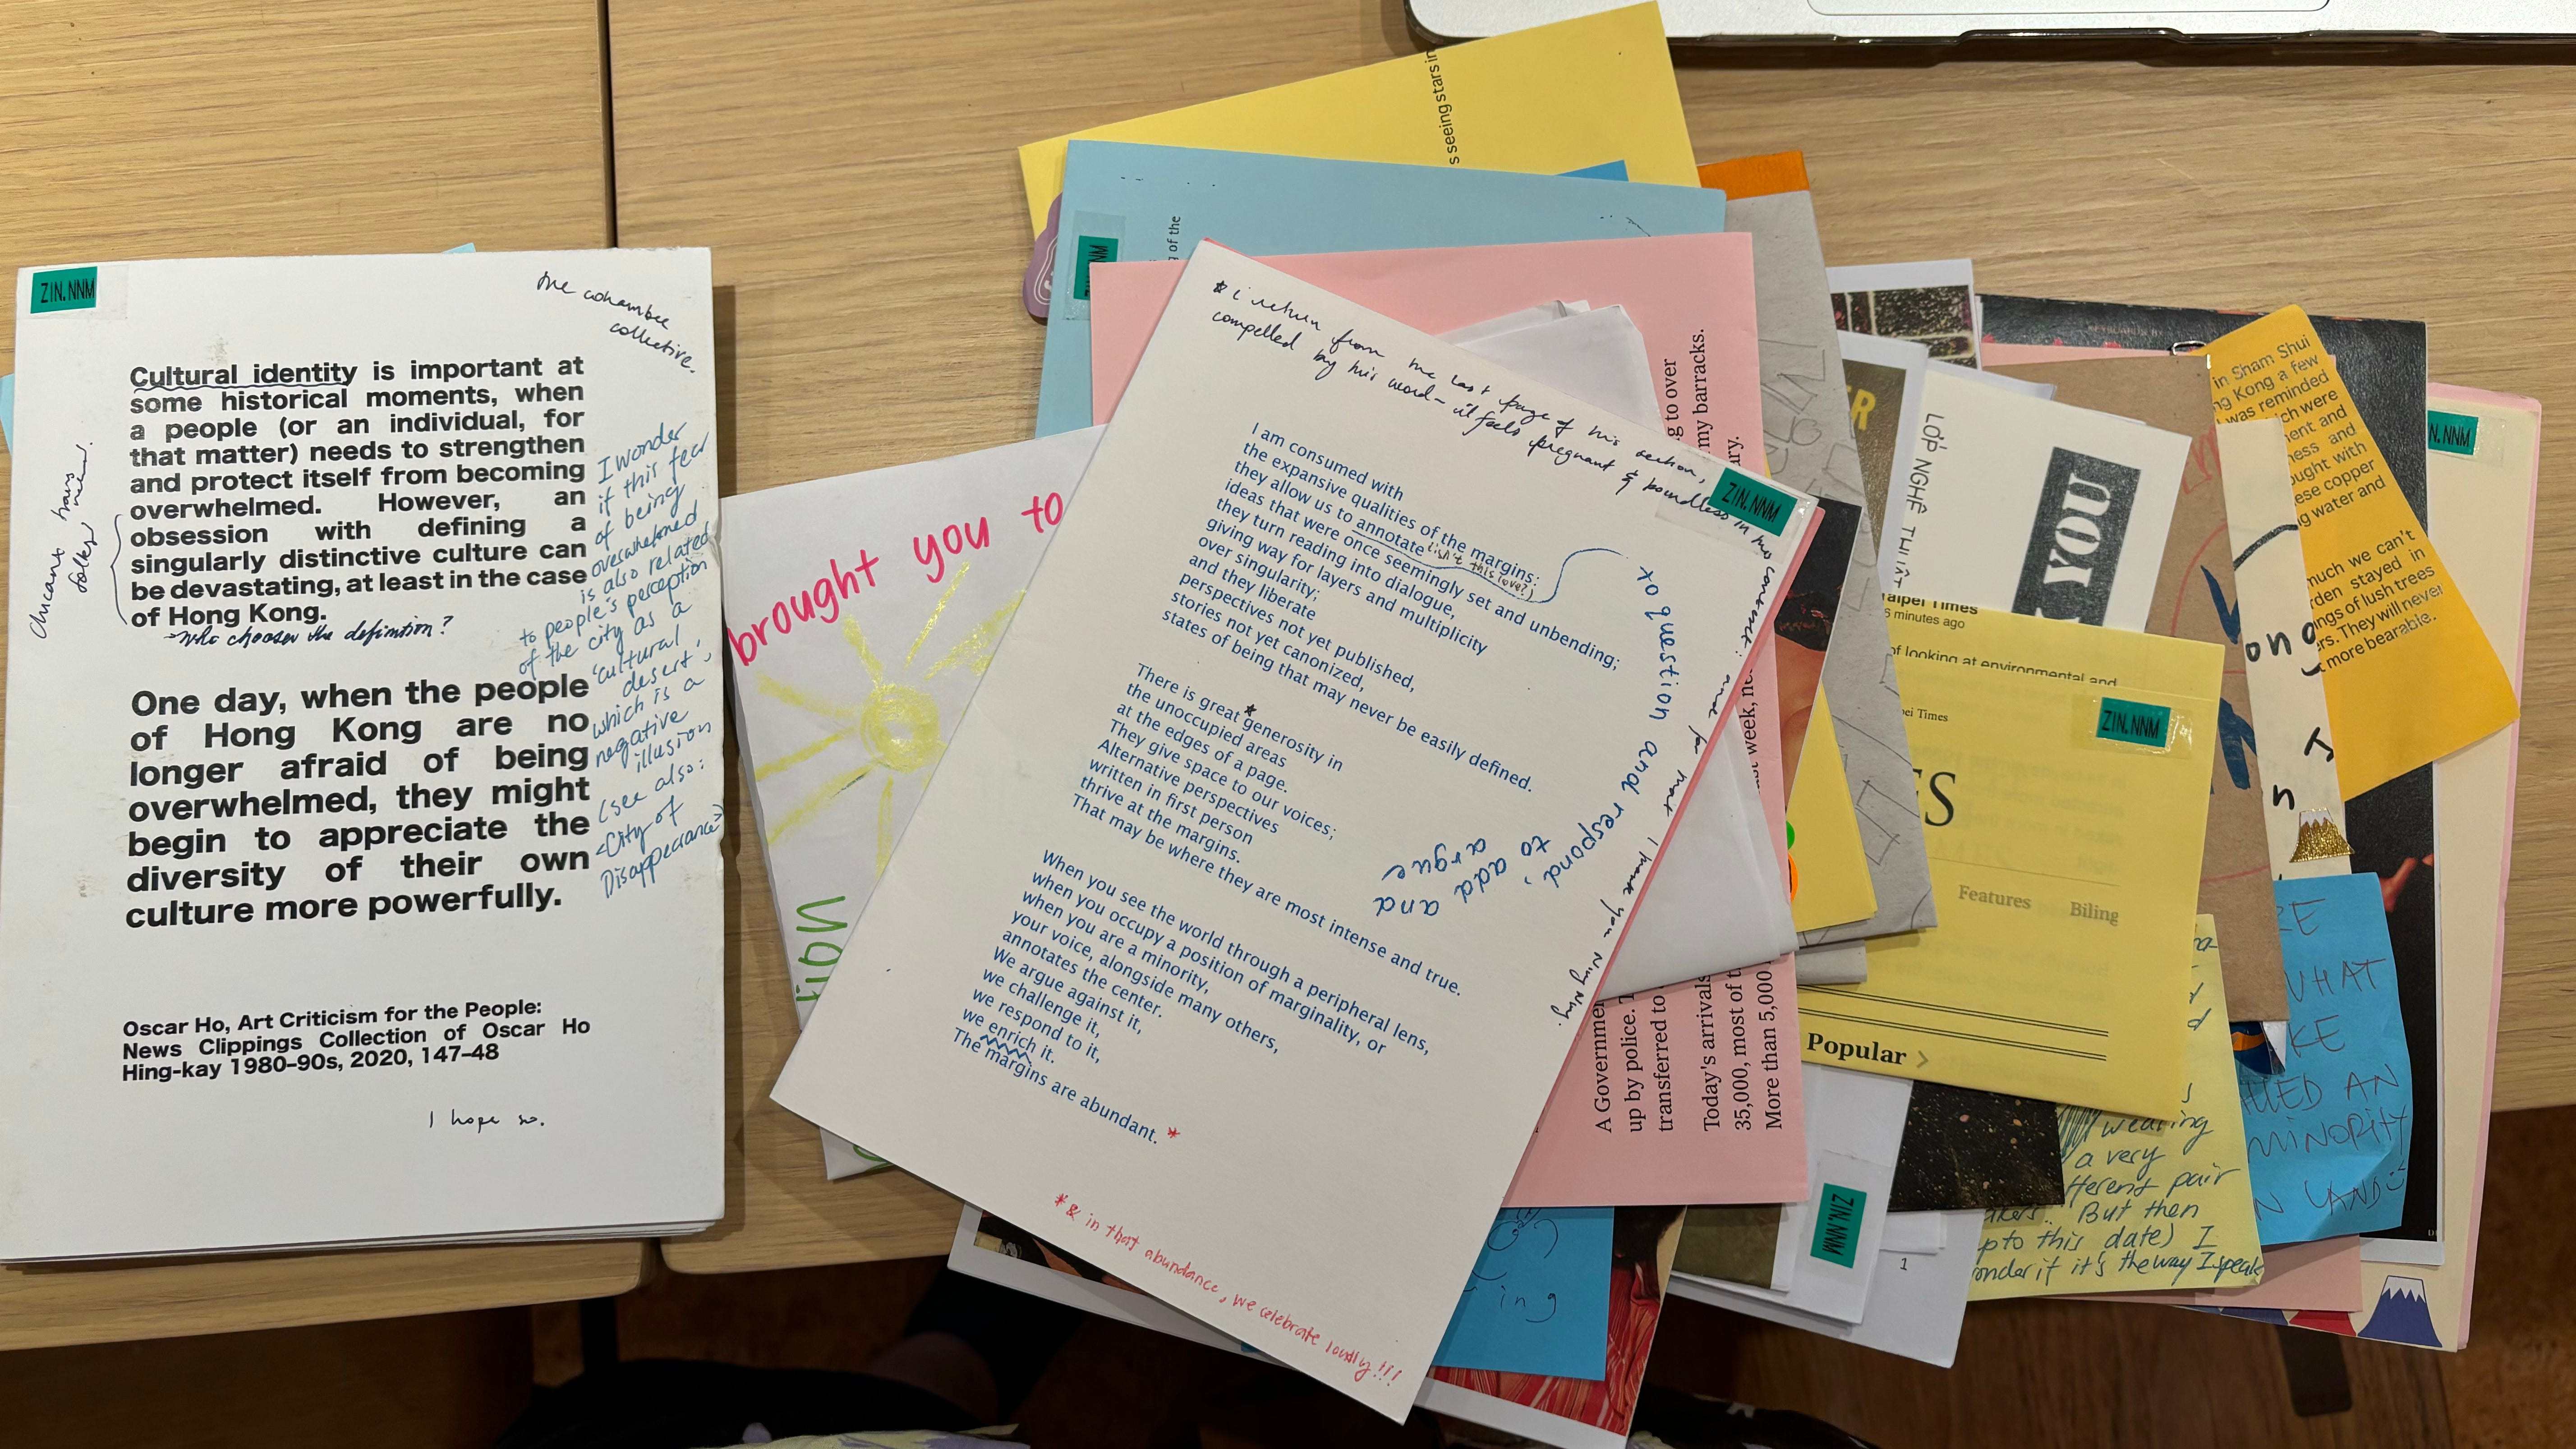 ZIN.NNM
the cohambee
collective.
Cultural identity is important at
some historical moments, when
a people (or an individual, for
that matter) needs to strengthen
and protect itself from becoming
overwhelmed. However, an
obsession with defining a
singularly distinctive culture can
be devastating, at least in the case
of Hong Kong.
who chooses the definition?
Chicanx
folks
I wonder
if this fear
of being
overwhelmed
is also related
to people's perception
of the city as a
'cultural
desert',
which is a
negative
illusion
(see also:
<City of
Disappearance>
One day, when the people
of Hong Kong are no
longer afraid of being
overwhelmed, they might
begin to appreciate the
diversity of their own
culture more powerfully.
Oscar Ho, Art Criticism for the People:
News Clippings Collection of Oscar Ho
Hing-kay 1980–90s, 2020, 147–48
I hope so.
brought you to
s seeing stars in
NNM
g of the
* i return from the last page of this section,
compelled by this word – it feels pregnant & boundless in this
ZIN.NNM
I am consumed with
the expansive qualities of the margins:
they allow us to annotate
(isn't this love?)
ideas that were once seemingly set and unbending;
they turn reading into dialogue,
giving way for layers and multiplicity
over singularity;
and they liberate
perspectives not yet published,
stories not yet canonized,
states of being that may never be easily defined.
to question and respond,
to add
and argue
There is great * generosity in
the unoccupied areas
at the edges of a page.
They give space to our voices;
Alternative perspectives
written in first person
thrive at the margins.
That may be where they are most intense and true.
When you see the world through a peripheral lens,
when you occupy a position of marginality, or
when you are a minority,
your voice, alongside many others,
annotates the center.
We argue against it,
we challenge it,
we respond to it,
we enrich it.
The margins are abundant. *
* & in that abundance, we celebrate loudly !!!
thank you Ning Ning.
g to over
my barracks.
ary.
t week,
A Governmen
up by police. T
transferred to
Today's arrivals
35,000, most of t
More than 5,000
ER
LỚP NGHỆ THUẬT
YOU
aipei Times
6 minutes ago
of looking at environmental and
ei Times
ZIN.NNM
ES
Features Biling
Popular >
in Sham Shui
ng Kong a few
was reminded
ich were
ment and
ness and
ought with
ese copper
g water and
much we can't
rden stayed in
ings of lush trees
rs. They will never
more bearable.
N.NNM
ong
n
RE
WHAT
KE
LLED AN
MINORITY
N LAND
wearing
a very
fferent pair
akers.. But then
pto this date) I
onder if it's the way I speak
ZIN.NNM
1
ing